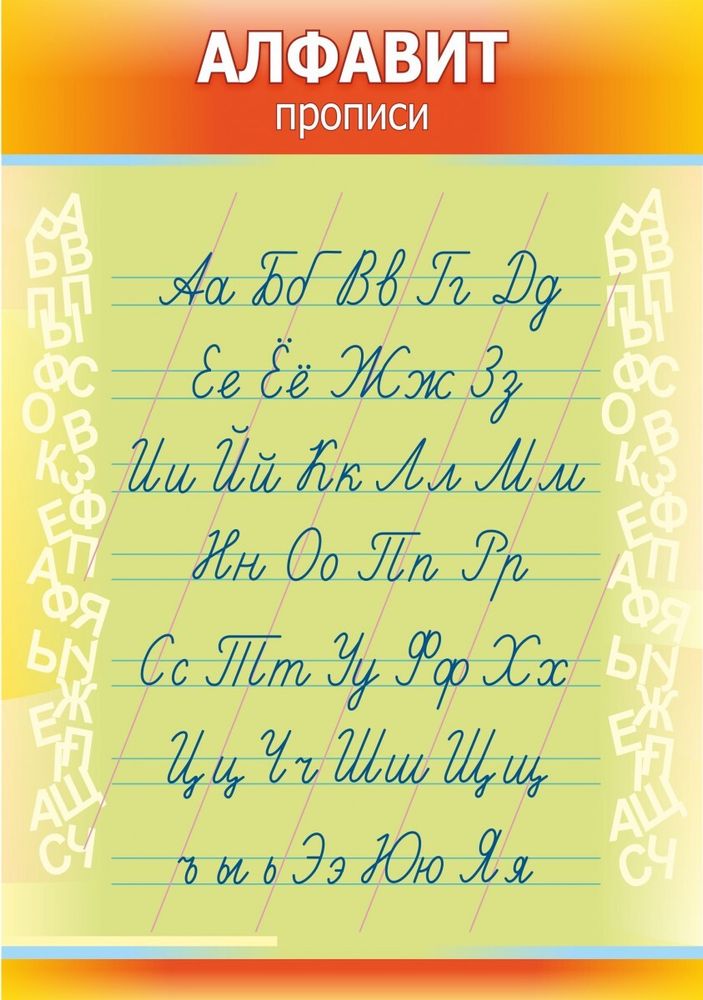 АЛФАВИТ
прописи
Аа Бб Вв Гг Дд
Ее Ёё Жж Зз
Ии Йй Кк Лл Мм
Нн Оо Пп Рр
Сс Тт Уу Фф Хх
Цц Чч Шш Щщ
ъ ы ь Ээ Юю Яя